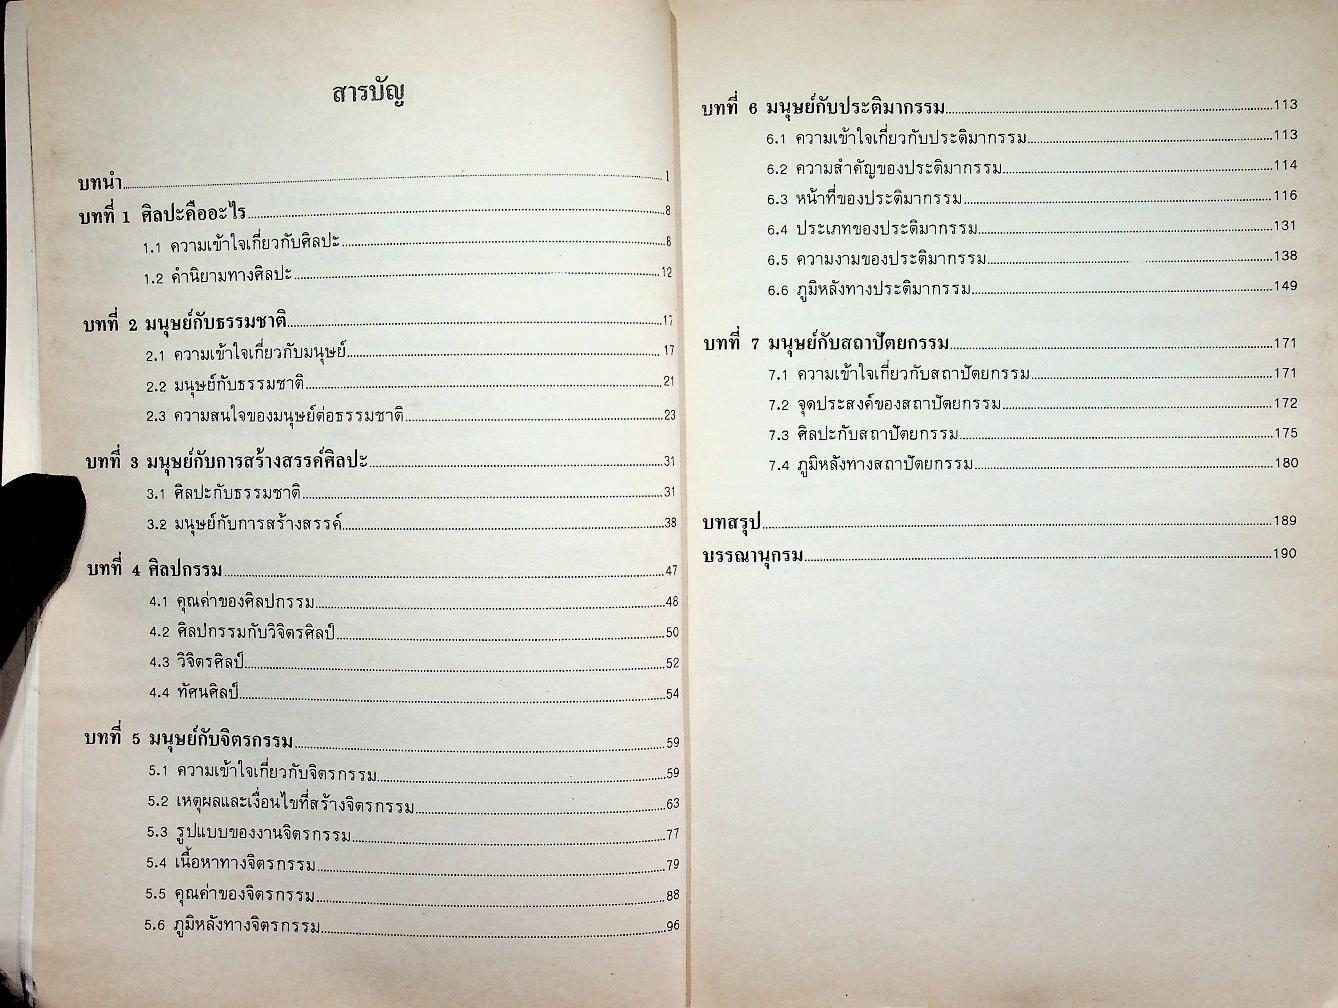 สารบัญ
บทนำ 1
บทที่ 1 ศิลปะคืออะไร 8
1.1 ความเข้าใจเกี่ยวกับศิลปะ 8
1.2 คำนิยามทางศิลปะ 12
บทที่ 2 มนุษย์กับธรรมชาติ 17
2.1 ความเข้าใจเกี่ยวกับมนุษย์ 17
2.2 มนุษย์กับธรรมชาติ 21
2.3 ความสนใจของมนุษย์ต่อธรรมชาติ 23
บทที่ 3 มนุษย์กับการสร้างสรรค์ศิลปะ 31
3.1 ศิลปะกับธรรมชาติ 31
3.2 มนุษย์กับการสร้างสรรค์ 38
บทที่ 4 ศิลปกรรม 47
4.1 คุณค่าของศิลปกรรม 48
4.2 ศิลปกรรมกับวิจิตรศิลป์ 50
4.3 วิจิตรศิลป์ 52
4.4 ทัศนศิลป์ 54
บทที่ 5 มนุษย์กับจิตรกรรม 59
5.1 ความเข้าใจเกี่ยวกับจิตรกรรม 59
5.2 เหตุผลและเงื่อนไขที่สร้างจิตรกรรม 63
5.3 รูปแบบของงานจิตรกรรม 77
5.4 เนื้อหาทางจิตรกรรม 79
5.5 คุณค่าของจิตรกรรม 88
5.6 ภูมิหลังทางจิตรกรรม 96
บทที่ 6 มนุษย์กับประติมากรรม 113
6.1 ความเข้าใจเกี่ยวกับประติมากรรม 113
6.2 ความสำคัญของประติมากรรม 114
6.3 หน้าที่ของประติมากรรม 116
6.4 ประเภทของประติมากรรม 131
6.5 ความงามของประติมากรรม 138
6.6 ภูมิหลังทางประติมากรรม 149
บทที่ 7 มนุษย์กับสถาปัตยกรรม 171
7.1 ความเข้าใจเกี่ยวกับสถาปัตยกรรม 171
7.2 จุดประสงค์ของสถาปัตยกรรม 172
7.3 ศิลปะกับสถาปัตยกรรม 175
7.4 ภูมิหลังทางสถาปัตยกรรม 180
บทสรุป 189
บรรณานุกรม 190